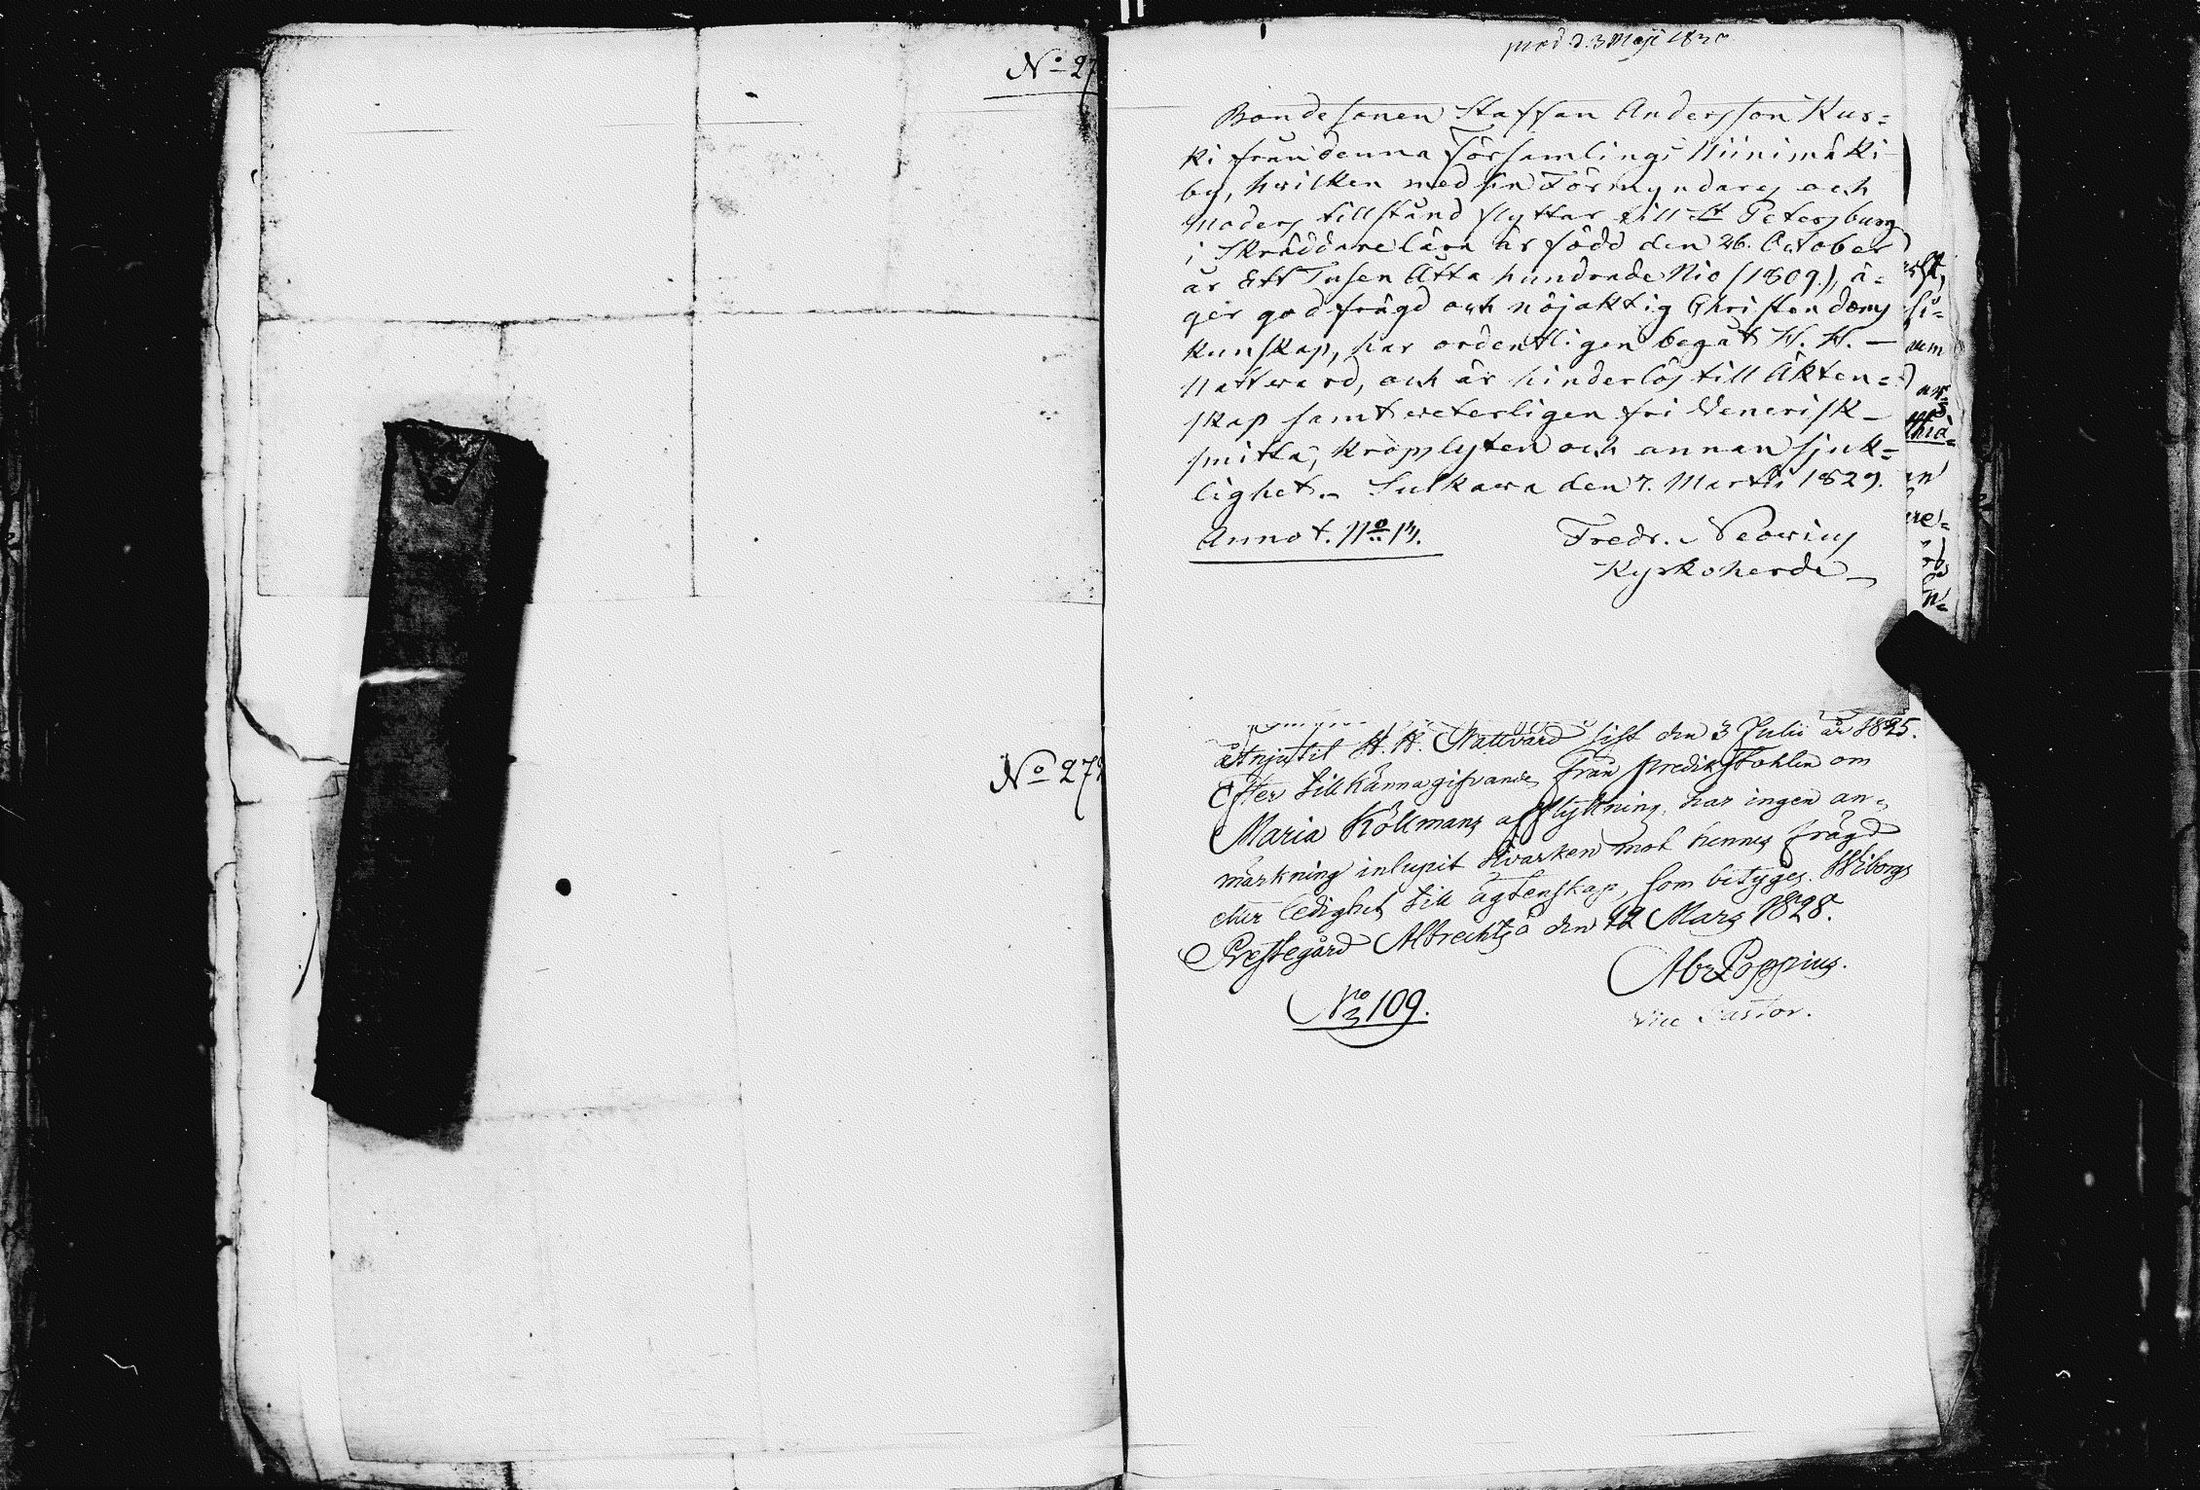 No 27
No 27
prod. d. 3 Maji 1830
Bondesonen Staffan Andersson Kus=
ki från denna Församlings Niinimäki
by, hvilken med sin Förmyndares och
Moders tillstånd flyttar till St Petersburg
i Skräddarelära är född den 26. October
år Ett Tusen Åtta hundrade Nio (1809.), ä=
ger god frägd och nöjaktig Christendoms
kunskap, har ordentligen begåt H. H. —
Nattward, och är hinderlös till Äkten=
skap samt weterligen fri Venerisk
smitta, kropplyten och annan sjuk=
lighet. — Sulkawa den 7. Martii 1829.
Annot. No 13.
Fredr. Neovius
Kyrkoherde
åtnjutit H. H. Nattvard sist den 3 Julii år 1825.
Efter tillkännagifvande från predikstohlen om
Maria Köllmans afflyttning, har ingen an=
märkning inlupit hvarken mot hennes frägd
eller ledighet till ägtenskap, som betyges. Wiborgs
Prestegård Albrechtsö den 12 Mars 1828.
Abr Poppius.
Vice Pastor.
No 109.